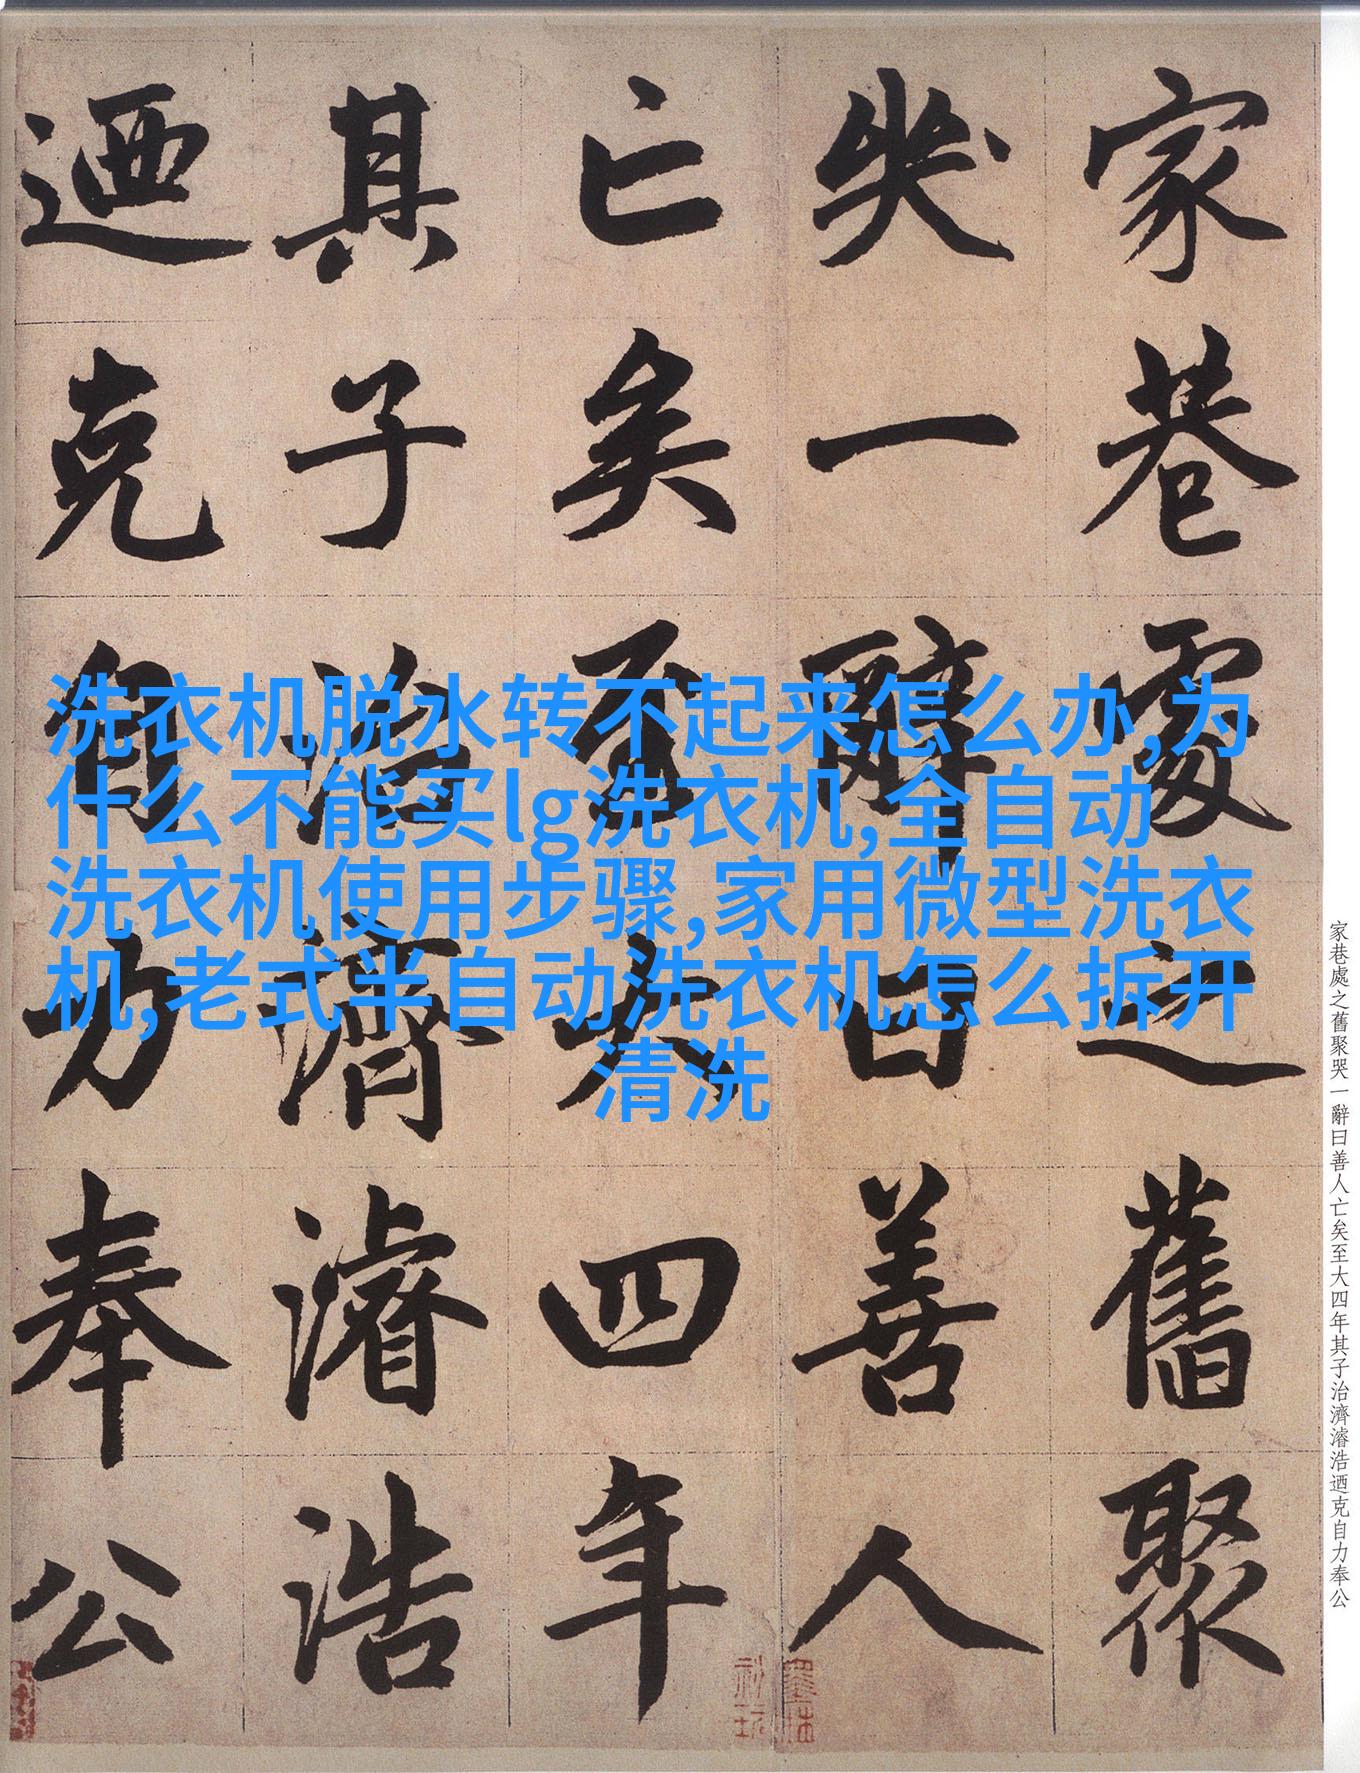 家巷處之舊聚
哭一辭曰善人
亡矣至大四年
其子治濟濬浩
迺克自力奉公
洗衣机脱水转不起来怎么办,为
什么不能买lg洗衣机,全自动
洗衣机使用步骤,家用微型洗衣
机,老式半自动洗衣机怎么拆开
清洗
家巷處之舊聚哭一辭曰善人亡矣至大四年其子治濟濬浩迺克自力奉公